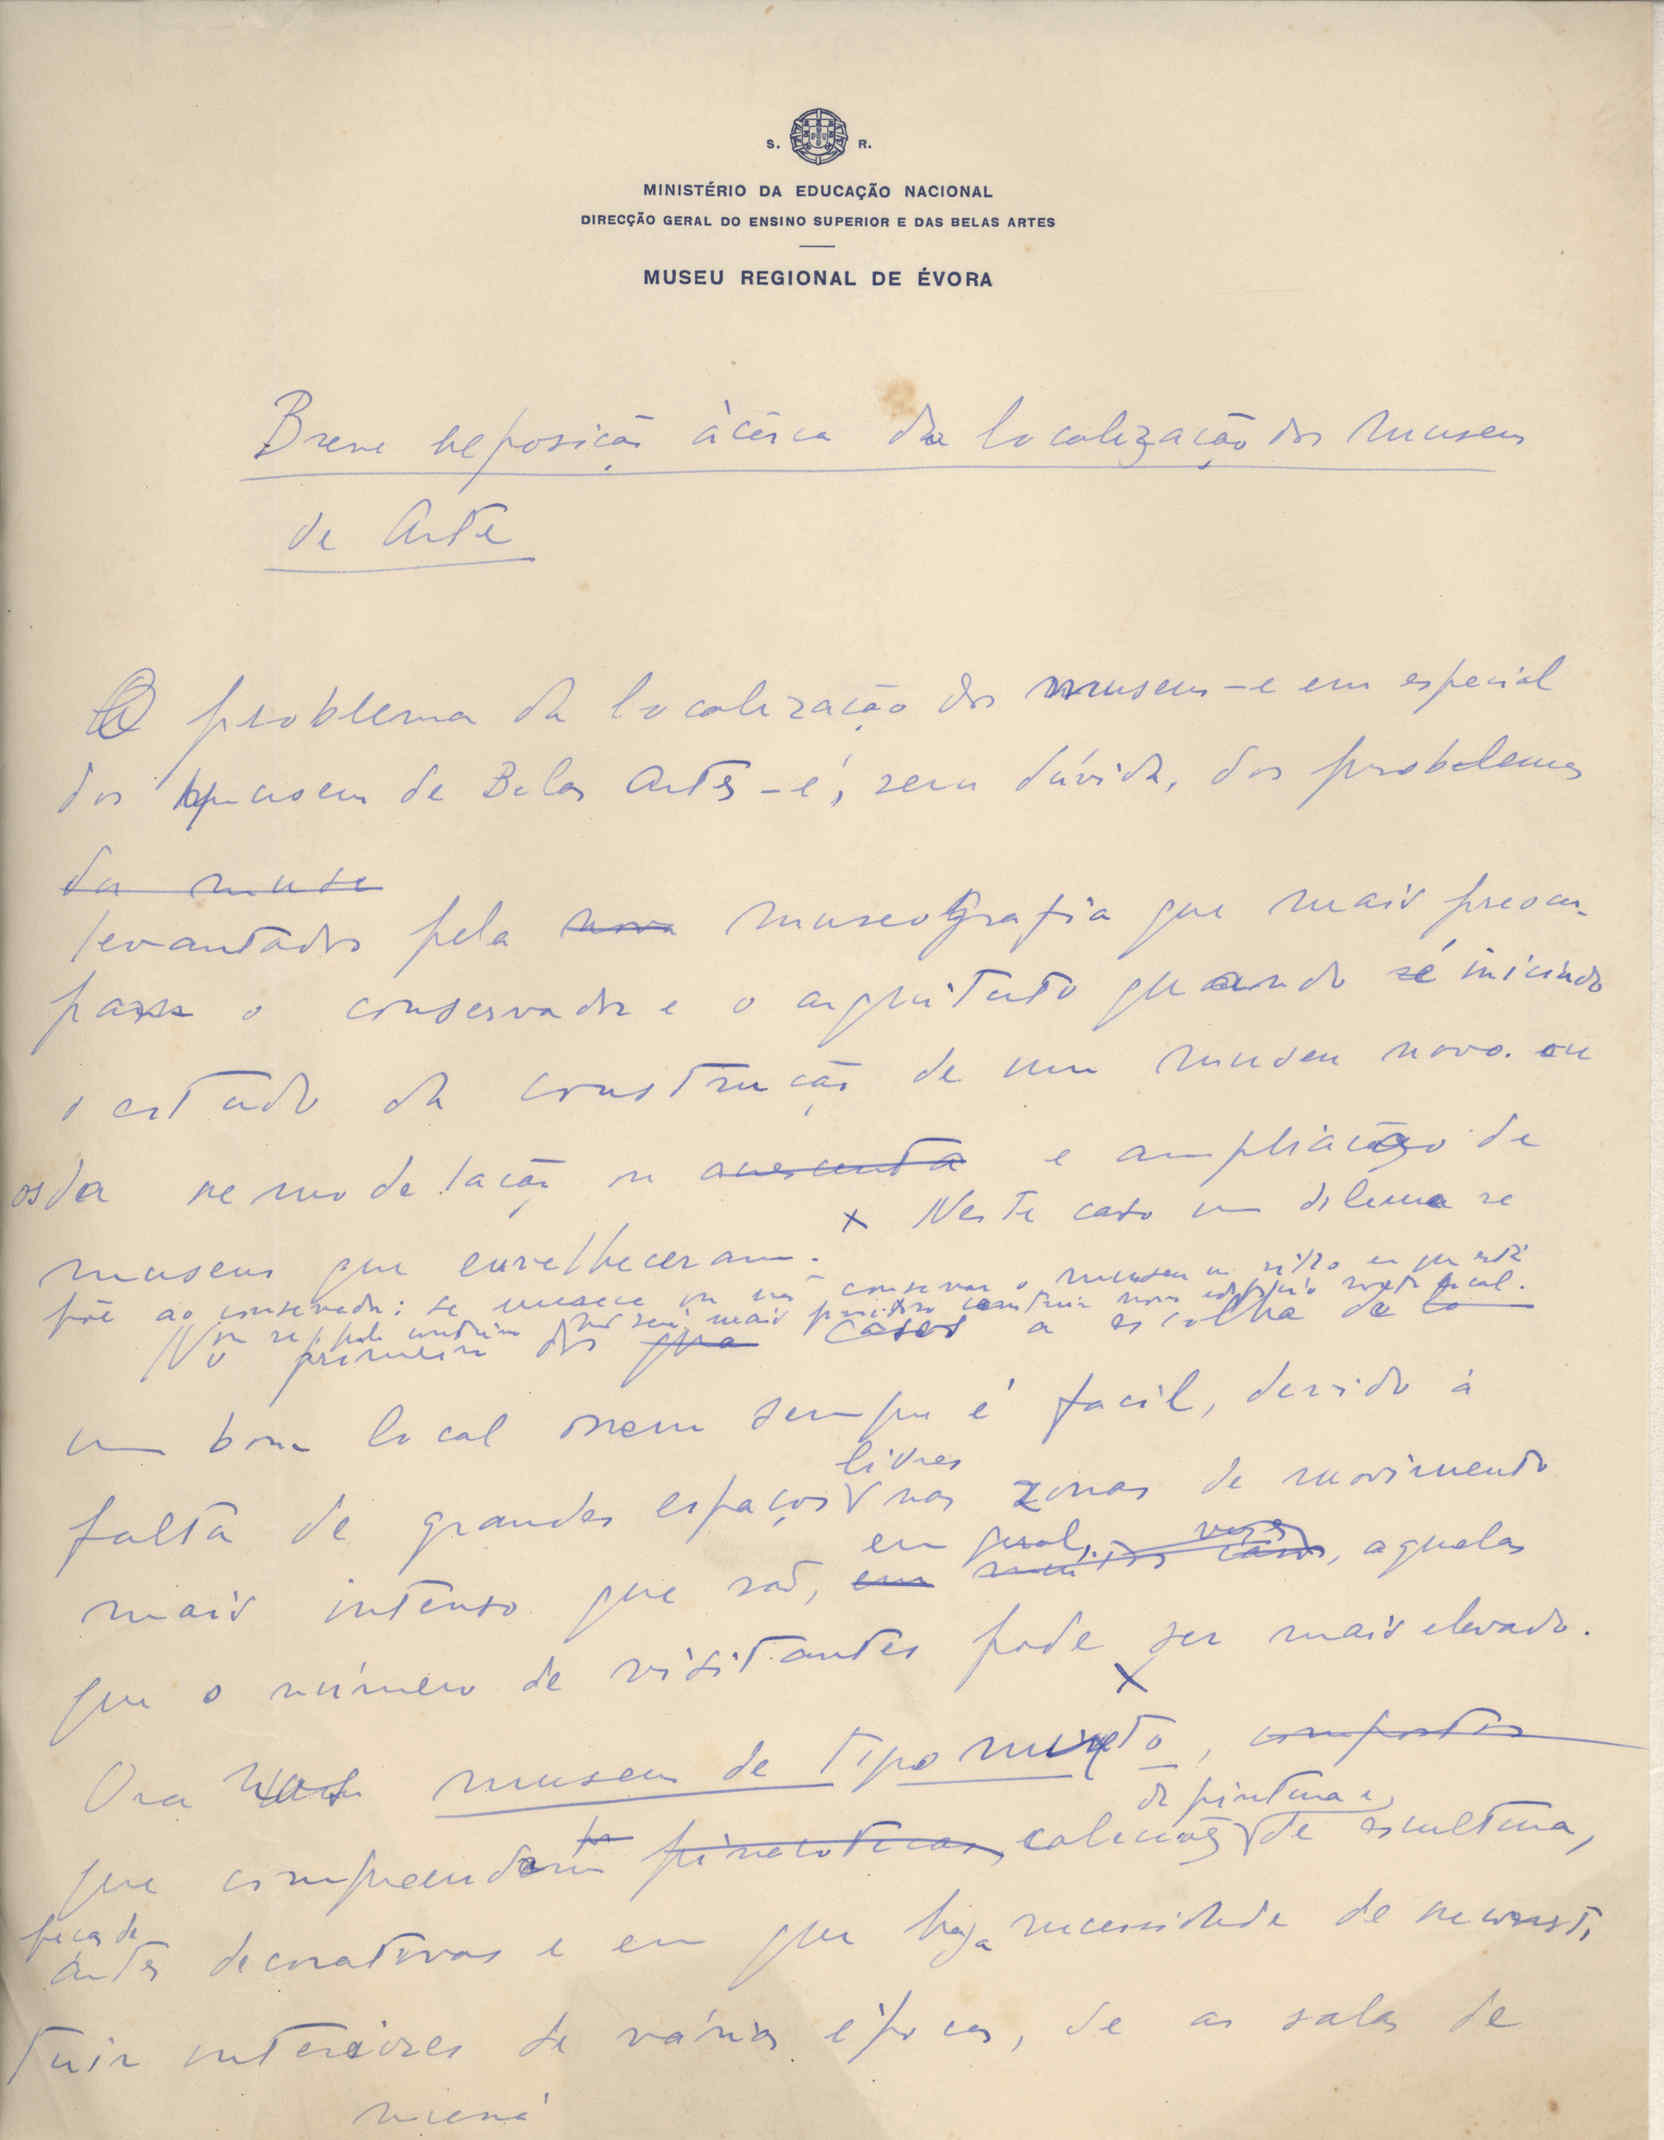 S. R.
MINISTÉRIO DA EDUCAÇÃO NACIONAL
DIRECÇÃO GERAL DO ENSINO SUPERIOR E DAS BELAS ARTES
MUSEU REGIONAL DE ÉVORA
Breve reposição àcêrca da localização dos museus
de Arte
O problema da localização dos museus - e em especial
dos museus de Belas Artes - é, sem dúvida, dos problemas
da muse
levantados pela nova museografia que mais preocu-
pam o conservador e o arquitecto quando se inicia
o estudo da construção de um museu novo ou
da remodelação ou e ampliação de
museus que envelheceram. x Neste caso um dilema se
põe ao conservador: se ou não conservar o museu no sítio em que está
ou se será mais construir novo local.
No primeiro dos casos a escolha de
um bom local nem sempre é facil, devido à
falta de grandes espaços livres nas zonas de movimento
mais intenso que são, em geral, aquelas
que o número de visitantes pode ser mais elevado.
x
Ora museus de tipo mixto, compostos
que compreendem pinacotecas, colecções de pintura e de escultura,
peças de artes decorativas e em que haja necessidade de reconsti
tuir interiores de várias épocas, de as salas de